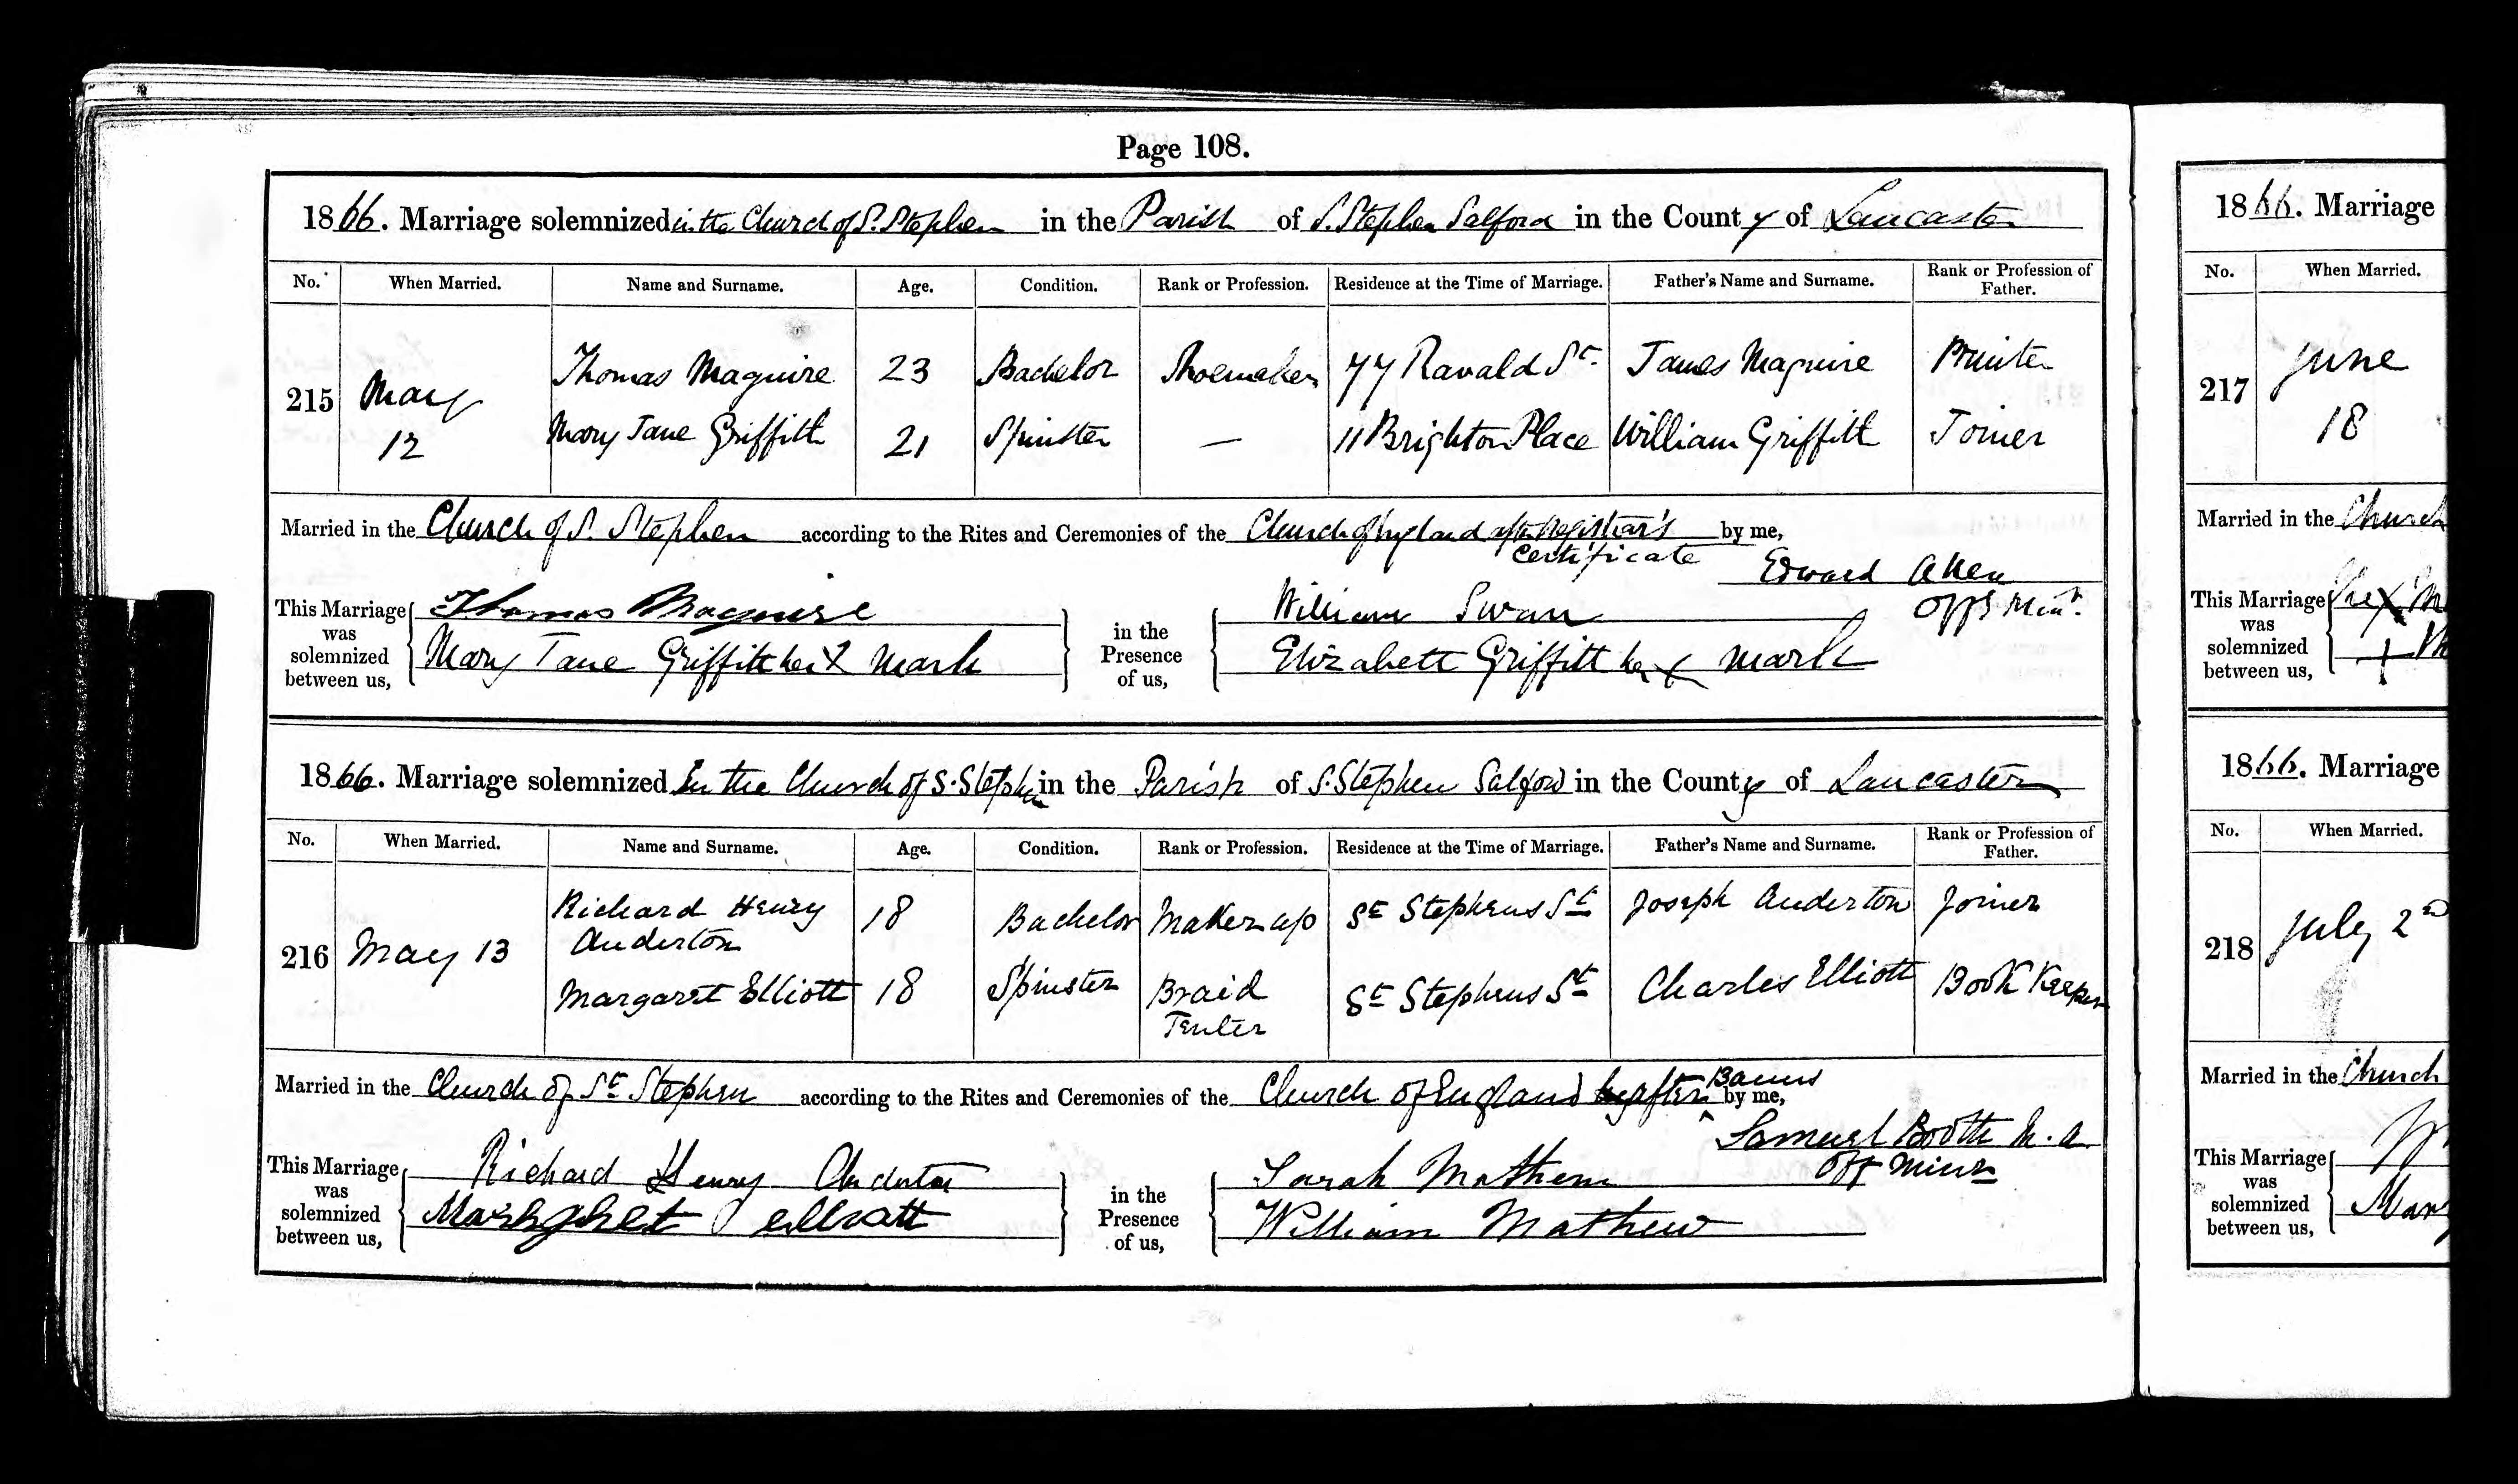 Page 108.
1866. Marriage solemnized in the Church of S. Stephen in the Parish of S. Stephen Salford in the County of Lancaster
No. When Married. Name and Surname. Age. Condition. Rank or Profession. Residence at the Time of Marriage. Father's Name and Surname. Rank or Profession of Father.
215 May 12
Thomas Maguire 23 Bachelor Shoemaker 77 Ravald St. James Maguire Printer
Mary Jane Griffith 21 Spinster — 11 Brighton Place William Griffith Joiner
Married in the Church of S. Stephen according to the Rites and Ceremonies of the Church of England after Registrar's Certificate by me,
Edward Allen
Offg Minr.
This Marriage was solemnized between us, Thomas Maguire
Mary Jane Griffith her X mark
in the Presence of us, William Swan
Elizabeth Griffith her X mark
1866. Marriage solemnized In the Church of S. Stephen in the Parish of S. Stephen Salford in the County of Lancaster
No. When Married. Name and Surname. Age. Condition. Rank or Profession. Residence at the Time of Marriage. Father's Name and Surname. Rank or Profession of Father.
216 May 13
Richard Henry Anderton 18 Bachelor Maker up St Stephens St Joseph Anderton Joiner
Margaret Elliott 18 Spinster Braid Tenter St Stephens St Charles Elliott Book Keeper
Married in the Church of St Stephen according to the Rites and Ceremonies of the Church of England after Banns by me,
Samuel Booth M.A
Off Minr
This Marriage was solemnized between us, Richard Henry Anderton
in the Presence of us, Sarah Mathew
William Mathew
1866. Marriage
No. When Married.
217 June 18
Married in the Church
This Marriage was solemnized between us,
1866. Marriage
No. When Married.
218 July 2nd
Married in the Church
This Marriage was solemnized between us,
Mary